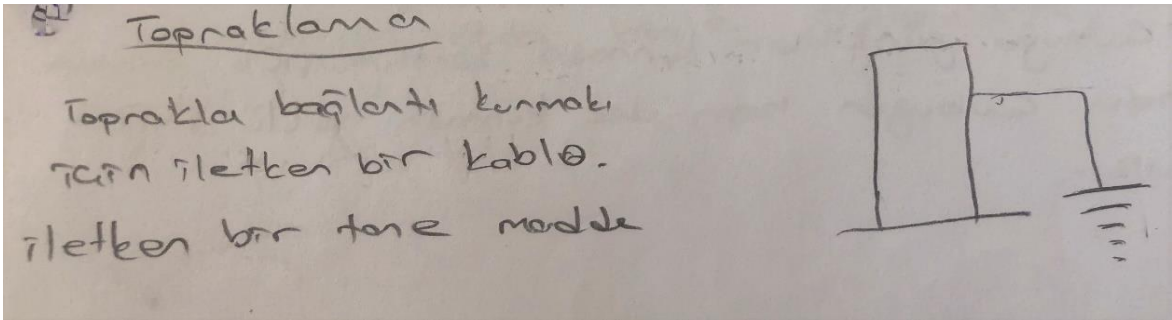 Topraklama
Toprakla bağlantı kurmak
için iletken bir kablo.
iletken bir tane madde